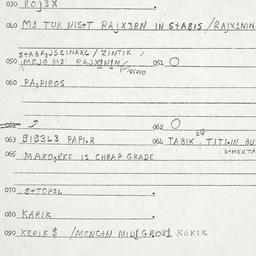 030 ROJ3X
040 M3 TUR NIS+T RAJX3RN IN S+ABIS / RAJX1MIN
S+ABA,JSCINAXL / ZINTIK
050 ME,JG M3' RAJX1N1N 051 O
060 PA,PIROS
062 O
063 BIB3L3 PAPI.R 064 TABIK, TITI.IN BU
065 MAXO,RKE IS CHEAP GRADE
070 S+TOPSL
080 KARIK
090 KERIK $ /MENC+N MID1 GRO81 KERIK